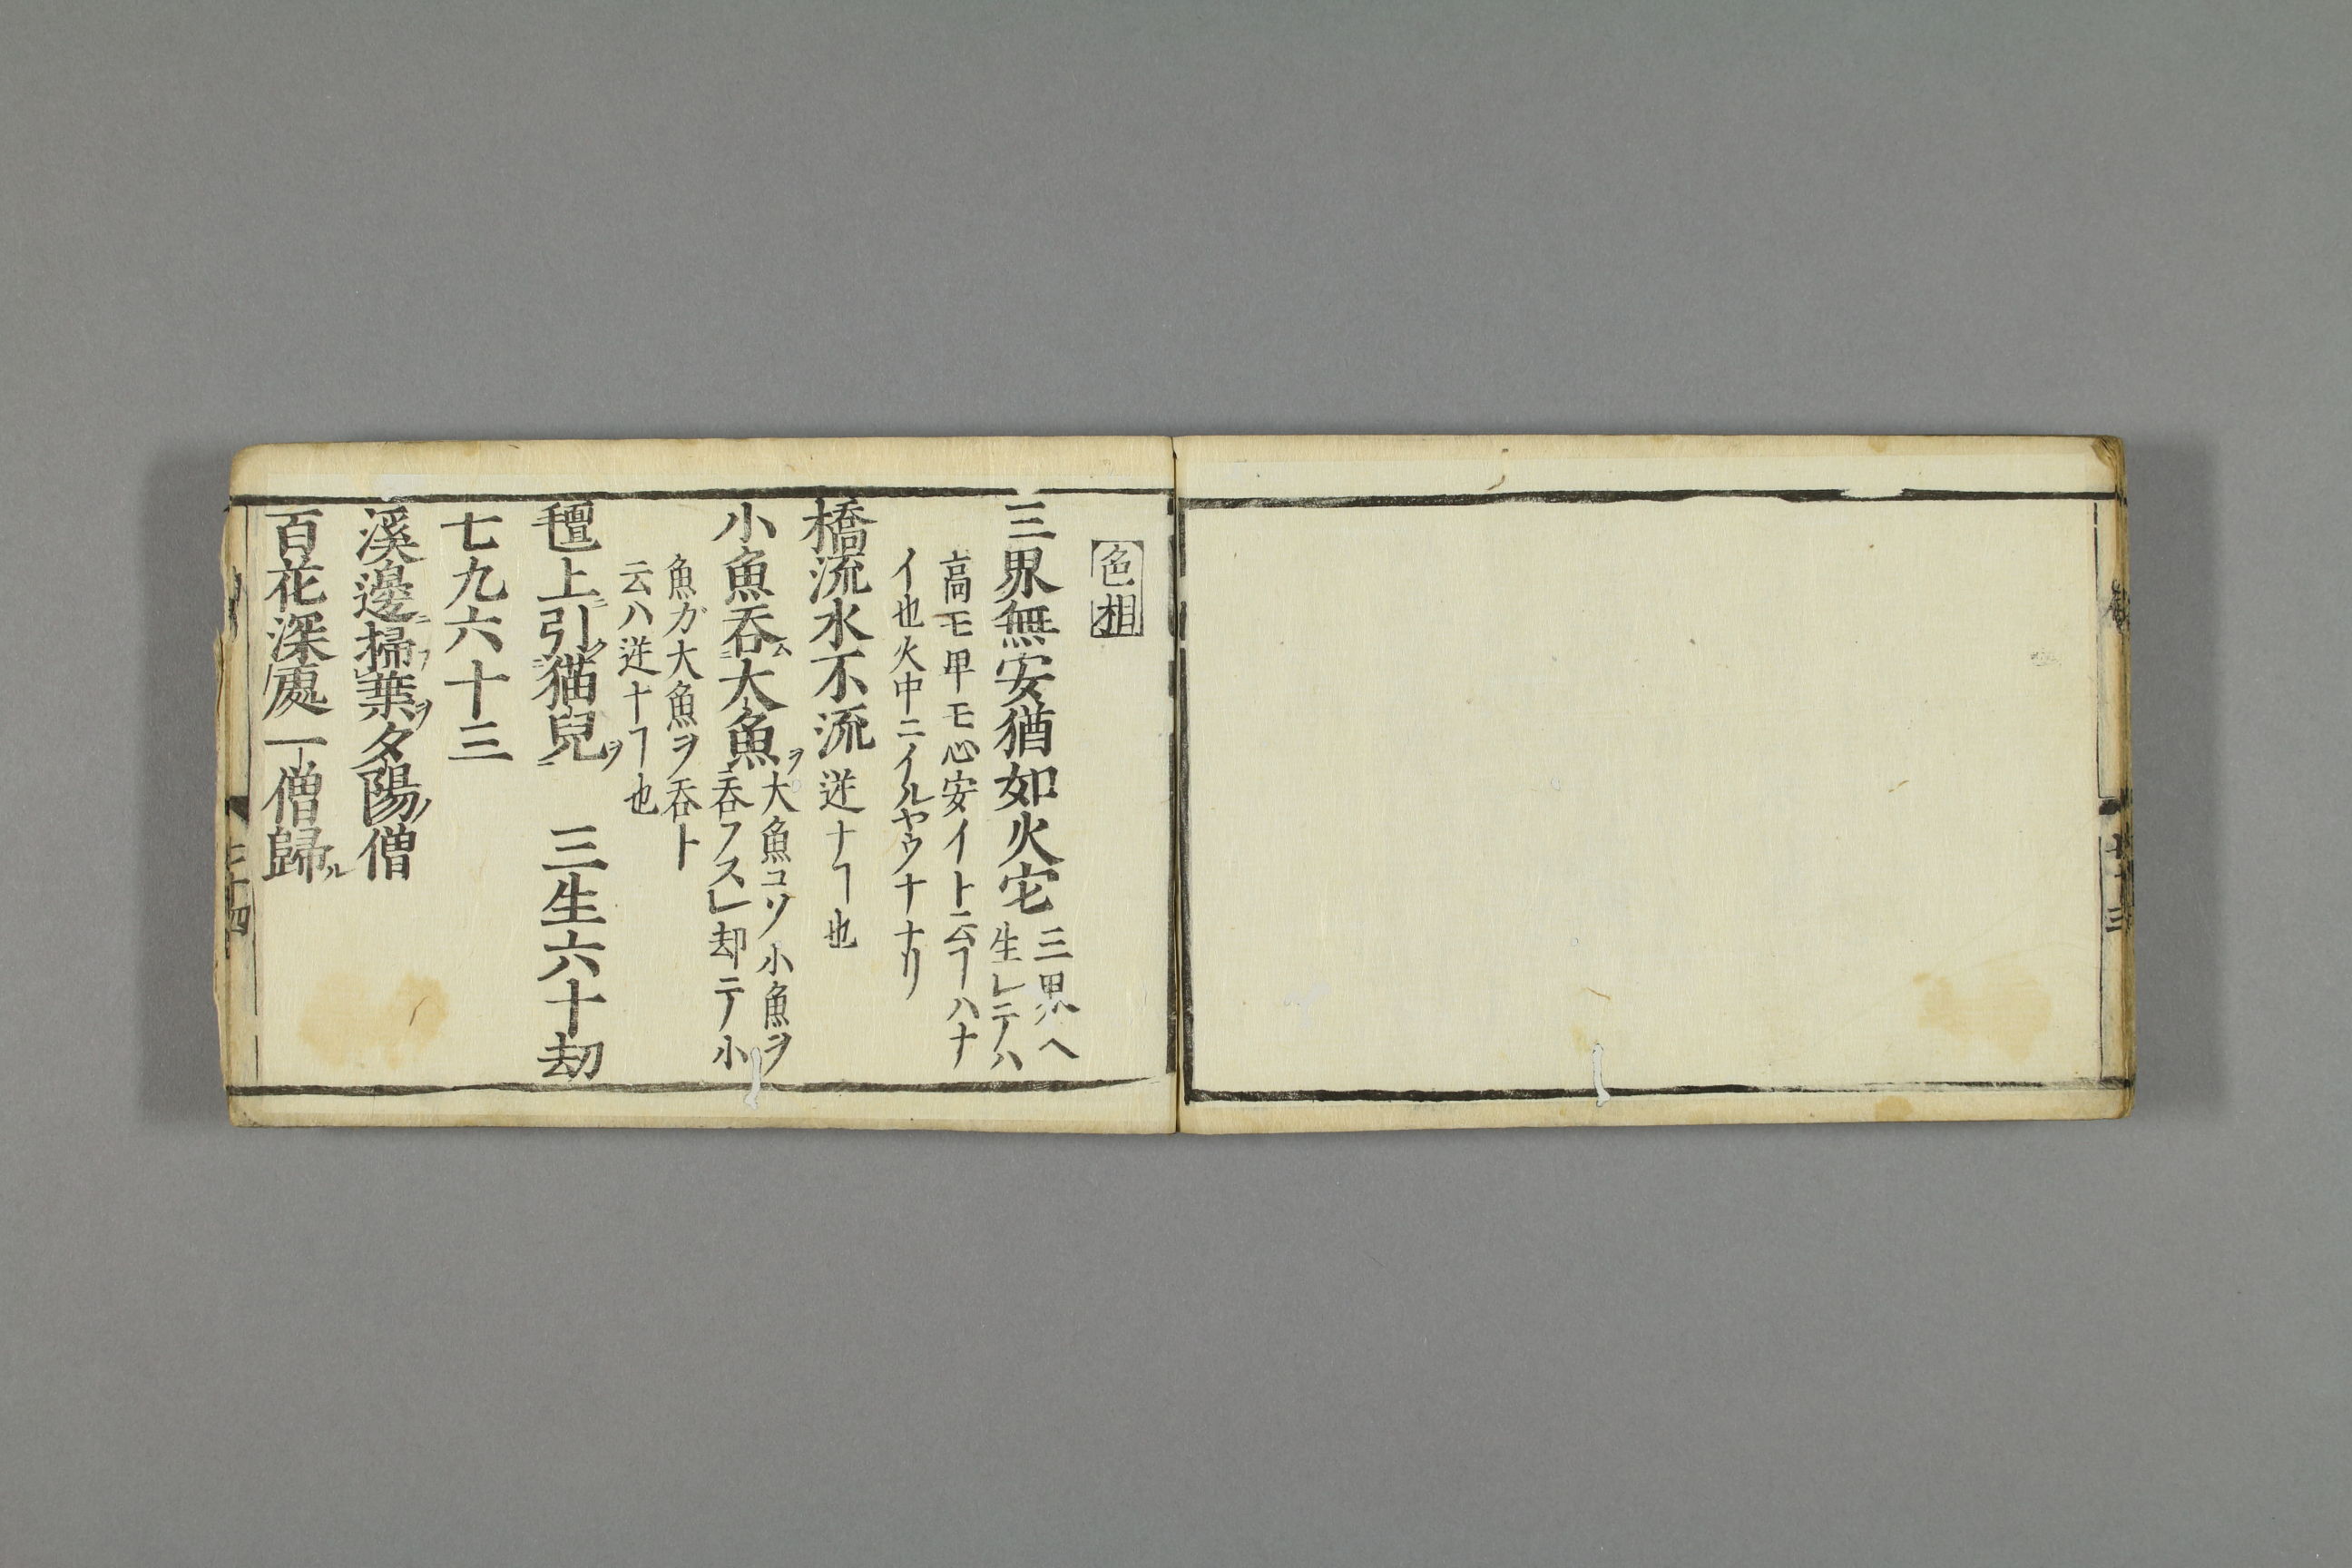 色相
三界無安猶如火宅 三界ヘ
生レテハ
高モ卑モ心安イト云ヿハナ
イ也火中ニイルヤウナナリ
橋流水不流 逆ナヿ也
小魚吞ム大魚ヲ 大魚コソ小魚ヲ
吞フスレ却テ小
魚ガ大魚ヲ吞ト
云ハ逆ナヿ也
氊上ニ引ク猫兒ヲ 三生六十劫
七九六十三
溪邊掃フ葉ヲ夕陽ノ僧
百花深處一僧歸ル
七十四